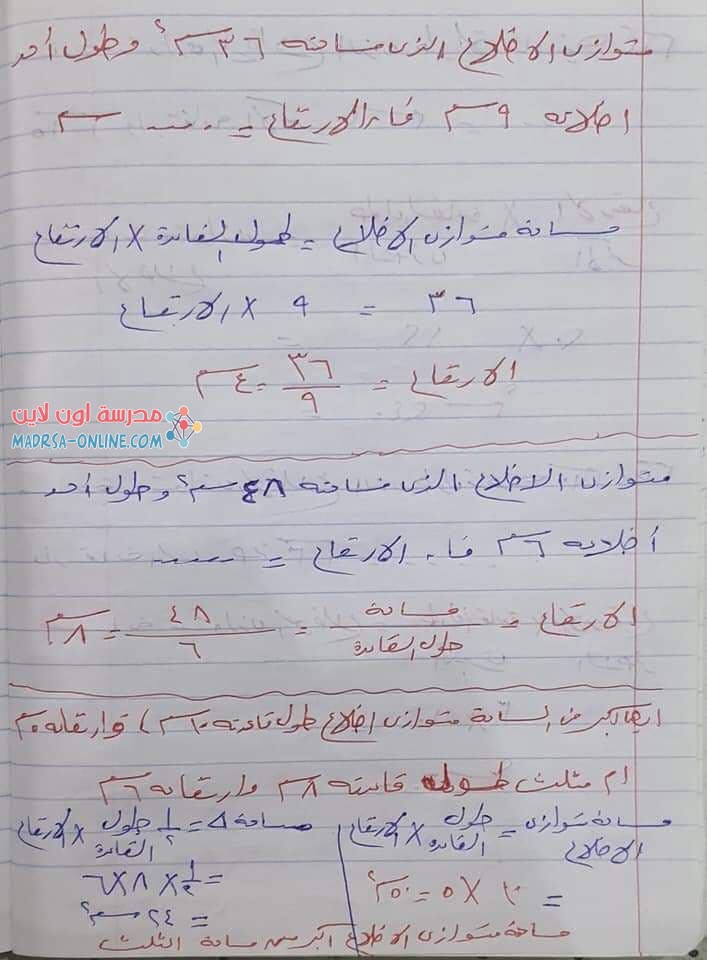 متوازى الاضلاع الذى مساحته ٣٦ سم٢ وطول أحد
اضلاعه ٩ سم فإن الارتفاع = ...... سم
مساحة متوازى الاضلاع = طول القاعدة × الارتفاع
٣٦ = ٩ × الارتفاع
الارتفاع = ٣٦/٩ = ٤ سم
مدرسة اون لاين
MADRSA-ONLINE.COM
متوازى الاضلاع الذى مساحته ٤٨ سم٢ وطول أحد
أضلاعه ٦ سم فإن الارتفاع = ......
الارتفاع = مساحة/طول القاعدة = ٤٨/٦ = ٨ سم
ايهما اكبر من المساحة متوازى اضلاع طول قاعدته ١٠ سم وارتفاعه ٥ سم
ام مثلث طول قاعدته ٨ سم وارتفاعه ٦ سم
مساحة متوازى الاضلاع = طول القاعدة × الارتفاع
= ١٠ × ٥ = ٥٠ سم٢
مساحة Δ = ١/٢ طول القاعدة × الارتفاع
= ١/٢ × ٨ × ٦
= ٢٤ سم٢
مساحة متوازى الاضلاع أكبر من مساحة المثلث